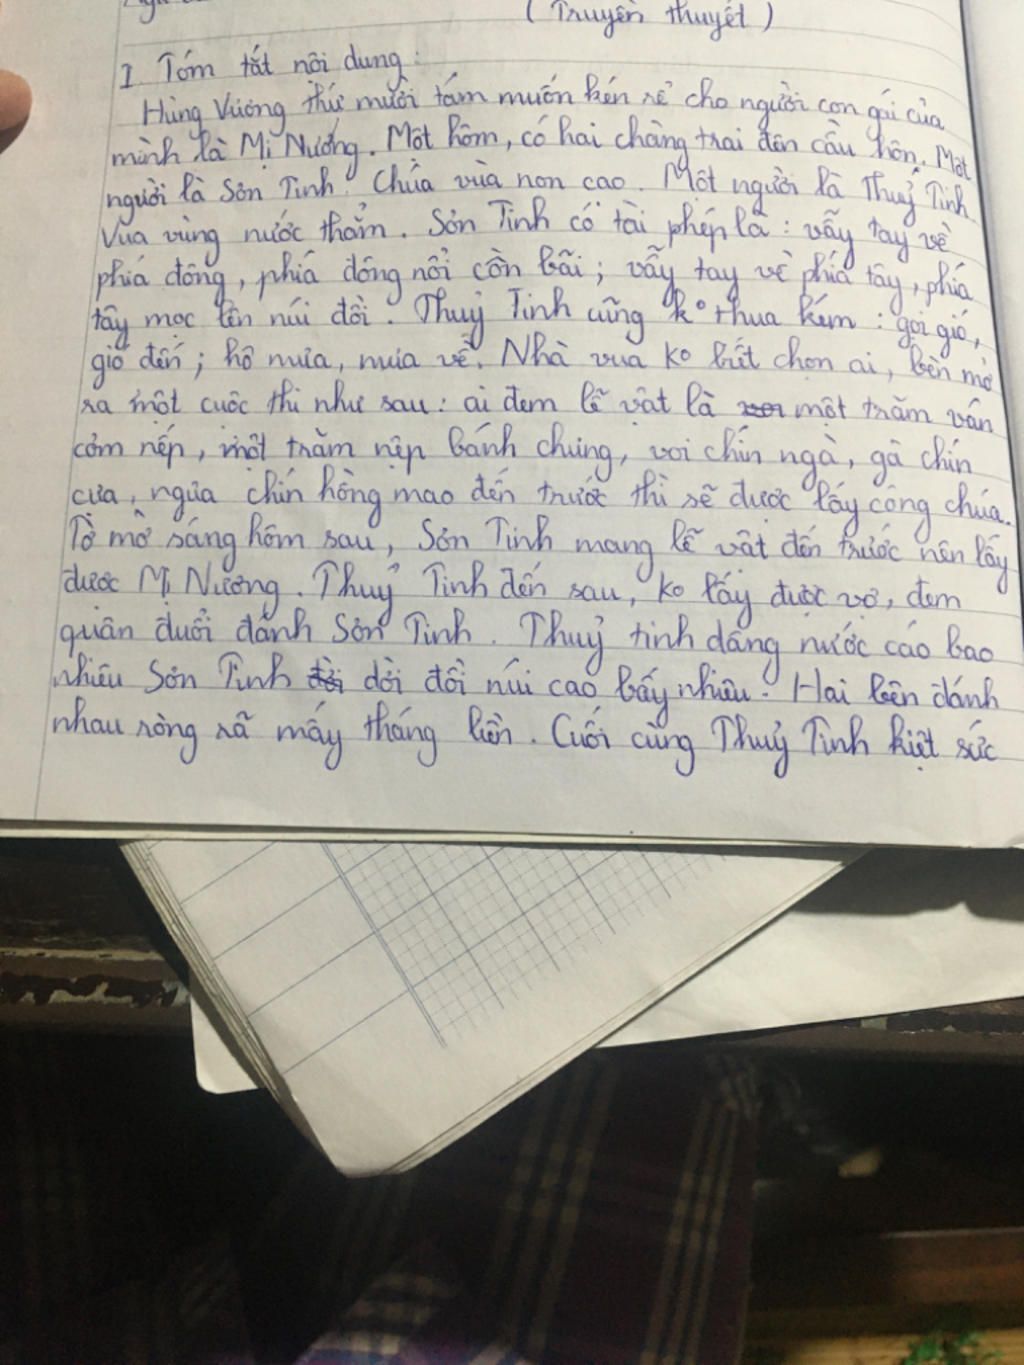 ( Truyền thuyết )
I Tóm tắt nội dung :
Hùng Vương thứ mười tám muốn kén rể cho người con gái của
mình là Mị Nương. Một hôm, có hai chàng trai đến cầu hôn. Một
người là Sơn Tinh. Chúa vùa non cao. Một người là Thuỷ Tinh
Vua vùng nước thẳm. Sơn Tinh có tài phép là : vẫy tay về
phía đông, phía đông nổi cồn bãi ; vẫy tay về phía tây, phía
tây mọc lên núi đồi. Thuỷ Tinh cũng ko thua kém : gọi gió,
gió đến ; hô mưa, mưa về. Nhà vua ko biết chọn ai, bèn mở
ra một cuộc thi như sau : ai đem lễ vật là một trăm ván
cơm nếp, một trăm nệp bánh chưng, voi chín ngà, gà chín
cựa, ngựa chín hồng mao đến trước thì sẽ được lấy công chúa.
Tờ mờ sáng hôm sau, Sơn Tinh mang lễ vật đến trước nên lấy
được Mị Nương. Thuỷ Tinh đến sau, ko lấy được vợ, đem
quân đuổi đánh Sơn Tinh. Thuỷ tinh dâng nước cáo bao
nhiêu Sơn Tinh dời đồi núi cao bấy nhiêu. Hai bên đánh
nhau ròng rã mấy tháng liền. Cuối cùng Thuỷ Tinh kiệt sức